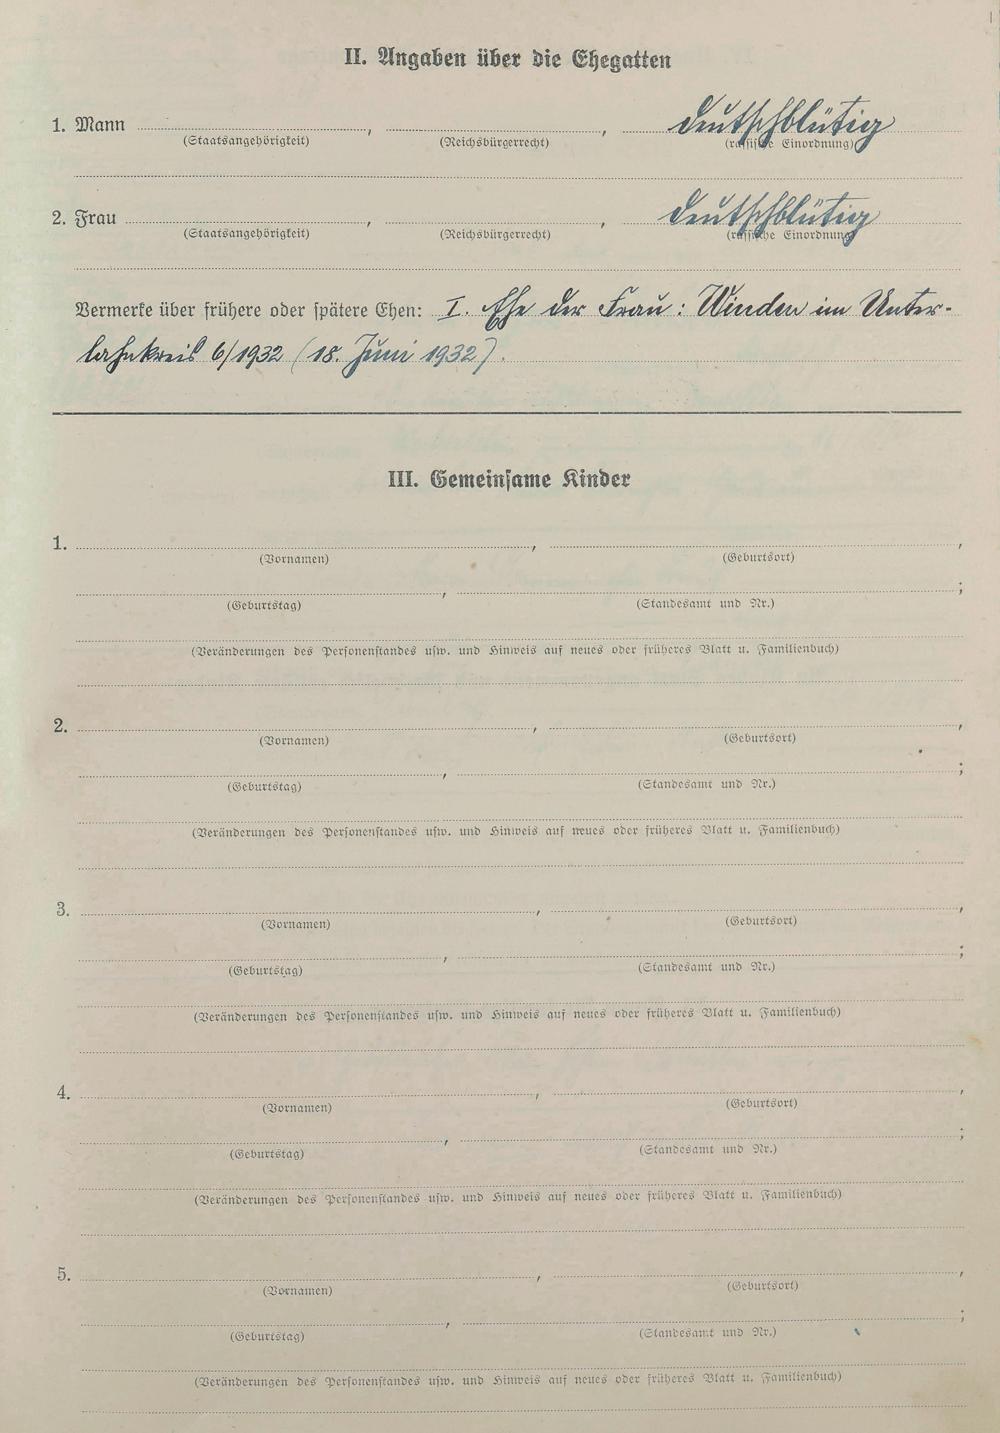 II. Angaben über die Ehegatten
1. Mann , , deutschblütig
(Staatsangehörigkeit) (Reichsbürgerrecht) (rassische Einordnung)
2. Frau , , deutschblütig
(Staatsangehörigkeit) (Reichsbürgerrecht) (rassische Einordnung)
Vermerke über frühere oder spätere Ehen: I. Ehe der Frau: Winden im Unter-
lahnkreis 6/1932 (18. Juni 1932).
III. Gemeinsame Kinder
1. , ,
(Vornamen) (Geburtsort)
, ;
(Geburtstag) (Standesamt und Nr.)
(Veränderungen des Personenstandes usw. und Hinweis auf neues oder früheres Blatt u. Familienbuch)
2. , ,
(Vornamen) (Geburtsort)
, ;
(Geburtstag) (Standesamt und Nr.)
(Veränderungen des Personenstandes usw. und Hinweis auf neues oder früheres Blatt u. Familienbuch)
3. , ,
(Vornamen) (Geburtsort)
, ;
(Geburtstag) (Standesamt und Nr.)
(Veränderungen des Personenstandes usw. und Hinweis auf neues oder früheres Blatt u. Familienbuch)
4. , ,
(Vornamen) (Geburtsort)
, ;
(Geburtstag) (Standesamt und Nr.)
(Veränderungen des Personenstandes usw. und Hinweis auf neues oder früheres Blatt u. Familienbuch)
5. , ,
(Vornamen) (Geburtsort)
, ;
(Geburtstag) (Standesamt und Nr.)
(Veränderungen des Personenstandes usw. und Hinweis auf neues oder früheres Blatt u. Familienbuch)